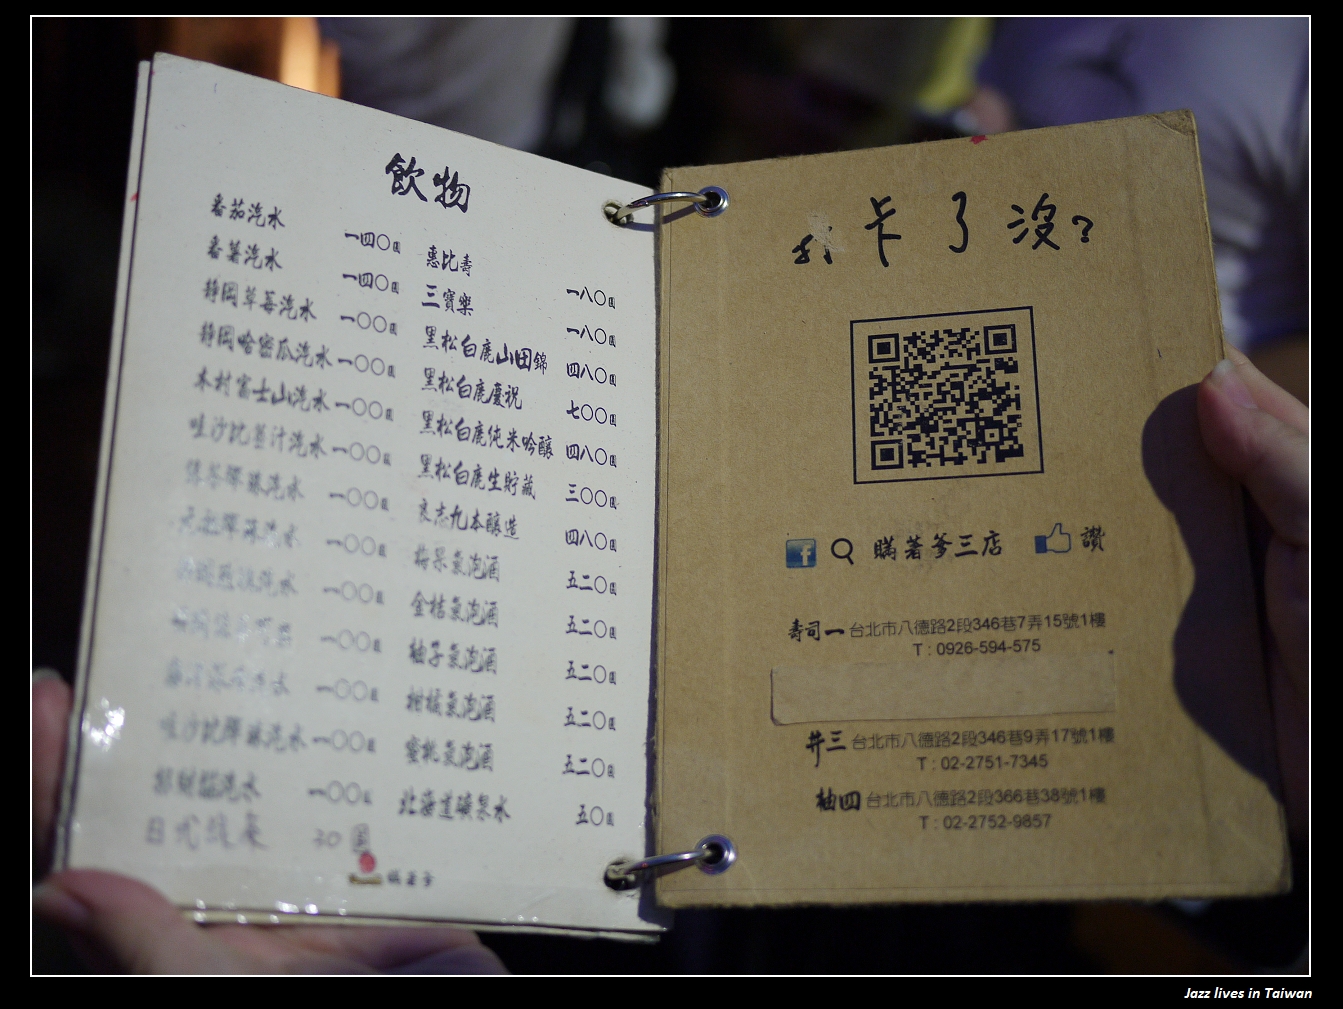 飲物
番茄汽水 一四〇圓
番薯汽水 一四〇圓
靜岡草莓汽水 一〇〇圓
靜岡哈密瓜汽水 一〇〇圓
木村富士山汽水 一〇〇圓
哇沙比薑汁汽水 一〇〇圓
彈珠汽水 一〇〇圓
彈珠汽水 一〇〇圓
汽水 一〇〇圓
一〇〇圓
一〇〇圓
哇沙比彈珠汽水 一〇〇圓
汽水 一〇〇圓
日式綠茶 30圓
惠比壽 一八〇圓
三寶樂 一八〇圓
黑松白鹿山田錦 四八〇圓
黑松白鹿慶祝 七〇〇圓
黑松白鹿純米吟釀 四八〇圓
黑松白鹿生貯藏 三〇〇圓
良志久本釀造 四八〇圓
梅果氣泡酒 五二〇圓
金桔氣泡酒 五二〇圓
柚子氣泡酒 五二〇圓
柑橘氣泡酒 五二〇圓
蜜桃氣泡酒 五二〇圓
北海道礦泉水 五〇圓
瞞著爹
打卡了沒?
f 瞞著爹三店 讚
壽司一 台北市八德路2段346巷7弄15號1樓
T : 0926-594-575
丼三 台北市八德路2段346巷9弄17號1樓
T : 02-2751-7345
柚四 台北市八德路2段366巷38號1樓
T : 02-2752-9857
Jazz lives in Taiwan